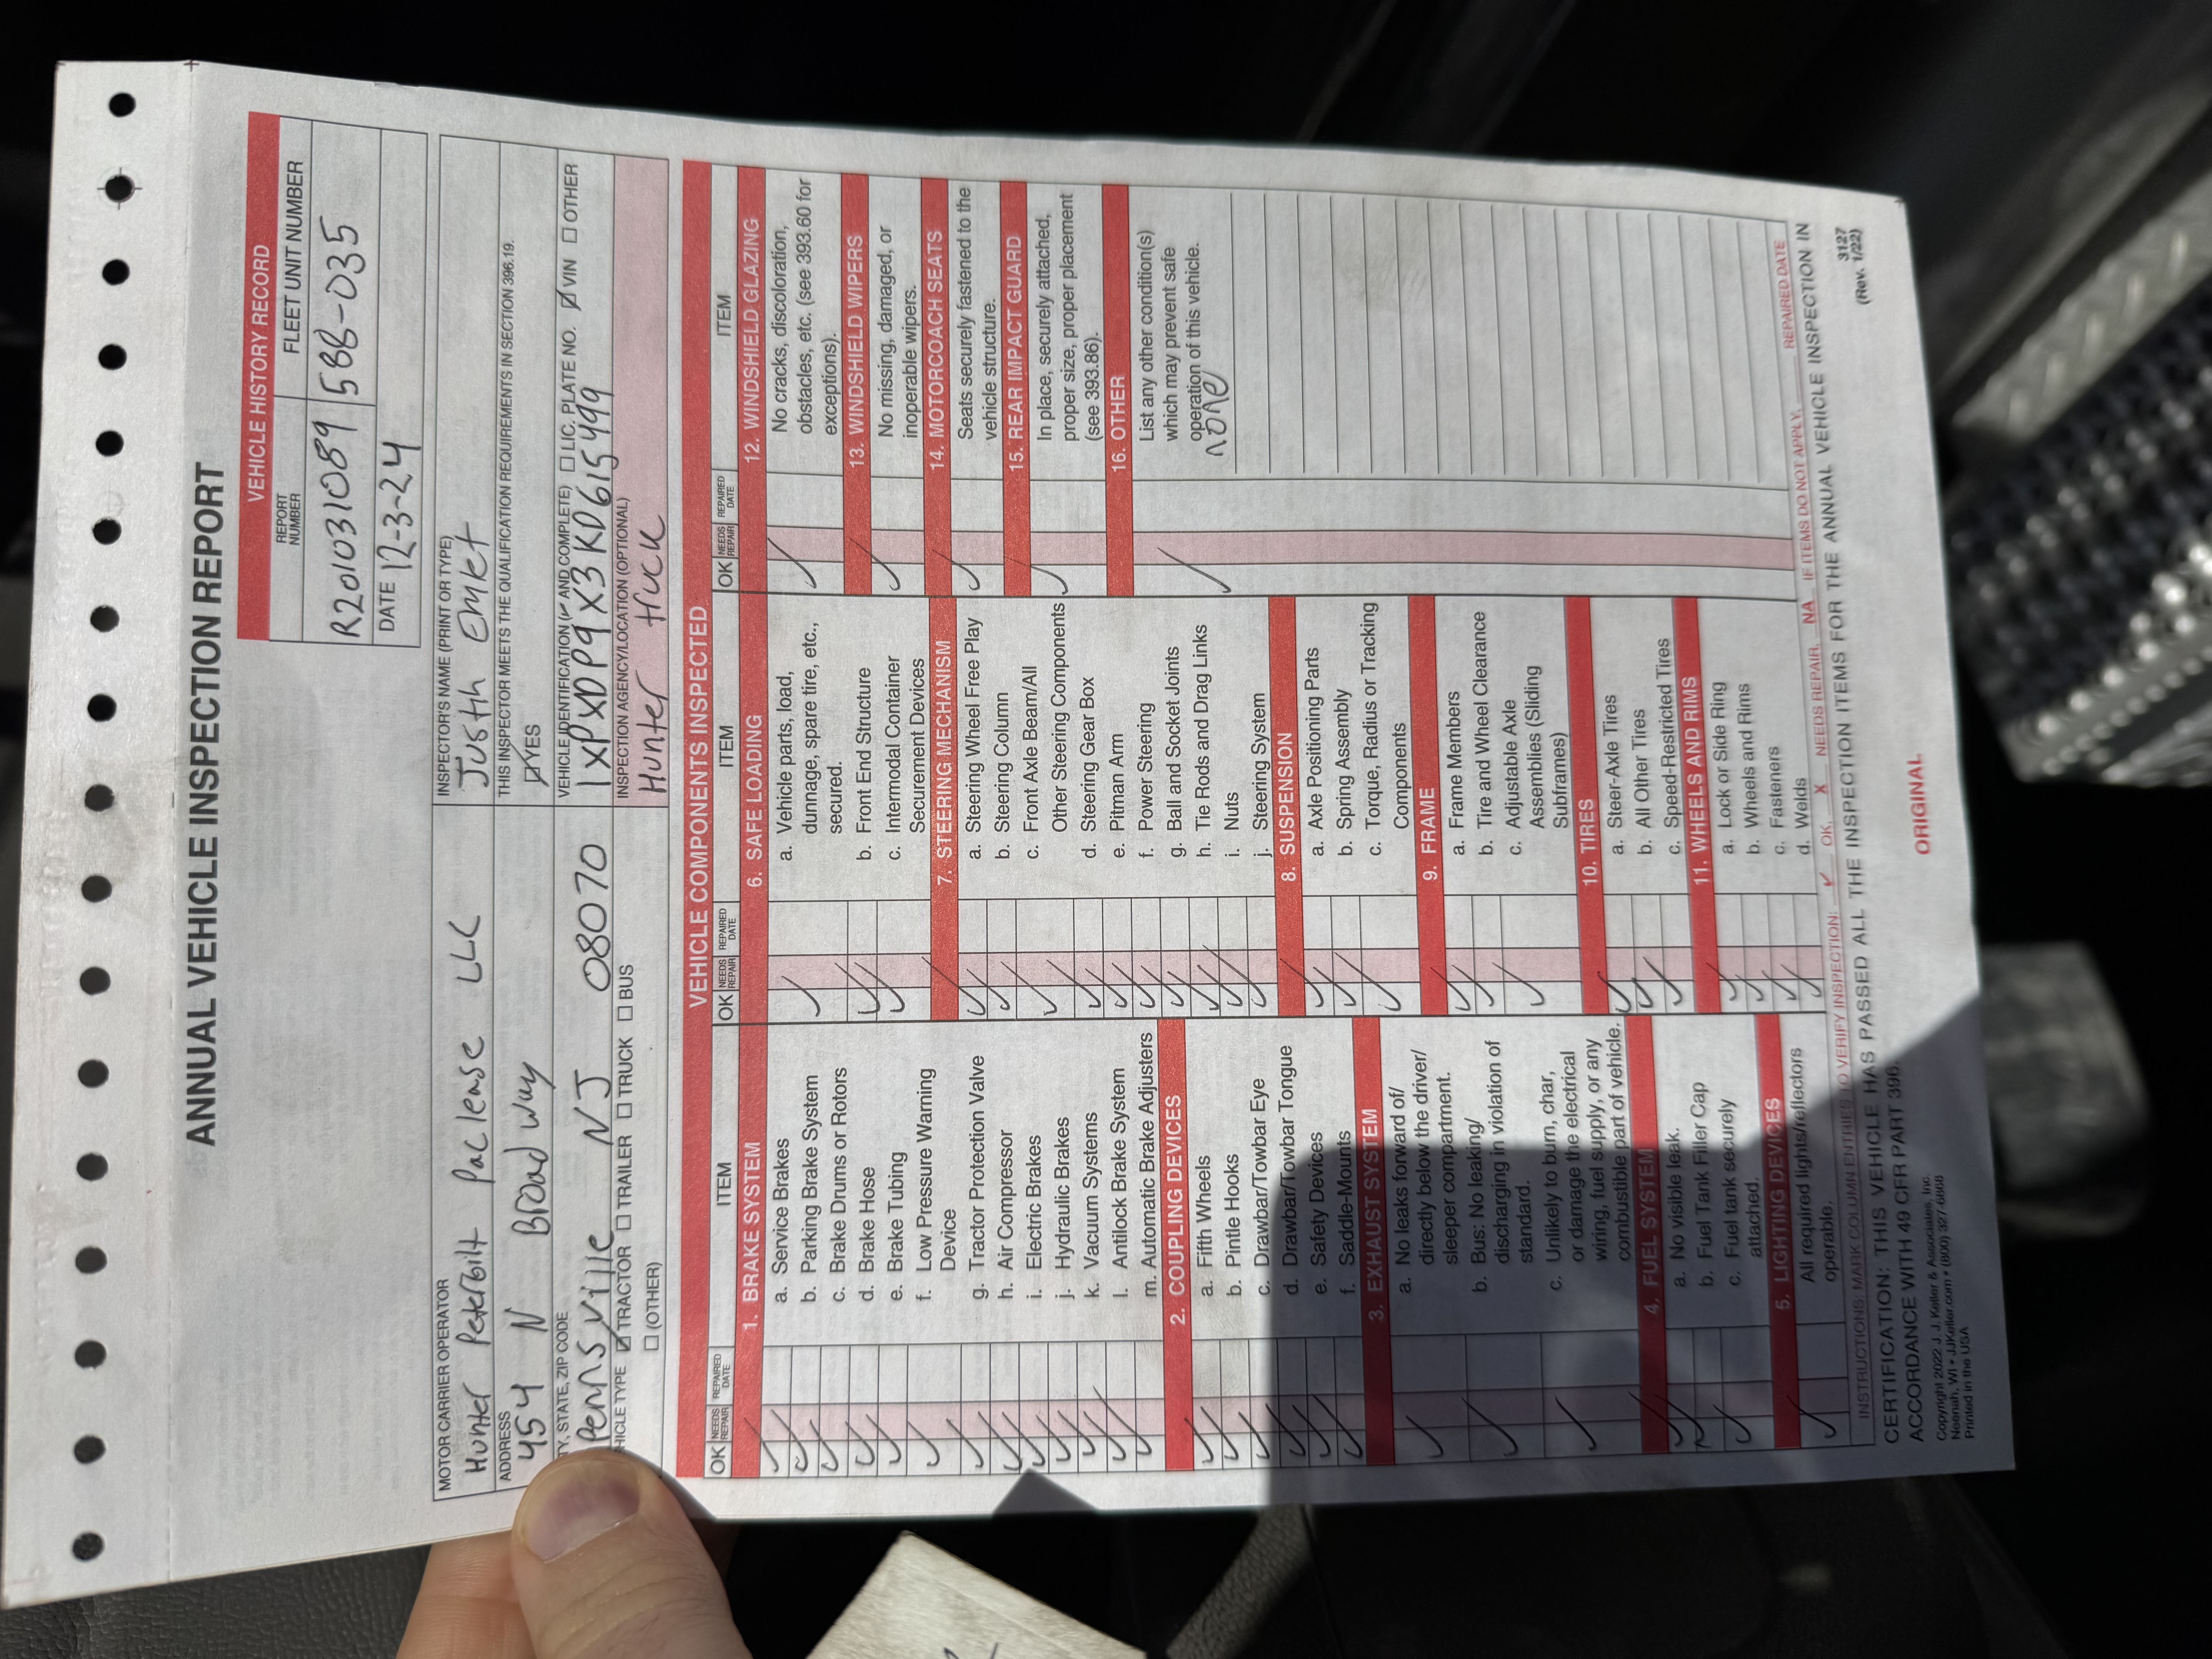 ANNUAL VEHICLE INSPECTION REPORT
VEHICLE HISTORY RECORD
REPORT NUMBER
FLEET UNIT NUMBER
R201031089
588-035
DATE 12-3-24
MOTOR CARRIER OPERATOR
Hunter Peterbilt Paclease LLC
ADDRESS
454 N Broadway
STATE, ZIP CODE
Pennsville NJ 08070
VEHICLE TYPE ☑ TRACTOR ☐ TRAILER ☐ TRUCK ☐ BUS
☐ (OTHER)
INSPECTOR'S NAME (PRINT OR TYPE)
Justin
THIS INSPECTOR MEETS THE QUALIFICATION REQUIREMENTS IN SECTION 396.19.
☑ YES
VEHICLE IDENTIFICATION (✓ AND COMPLETE) ☐ LIC. PLATE NO. ☑ VIN ☐ OTHER
1XPXDP9X3KD615499
INSPECTION AGENCY/LOCATION (OPTIONAL)
Hunter Huck
VEHICLE COMPONENTS INSPECTED
OK NEEDS REPAIR REPAIRED DATE ITEM
1. BRAKE SYSTEM
✓ a. Service Brakes
✓ b. Parking Brake System
✓ c. Brake Drums or Rotors
✓ d. Brake Hose
✓ e. Brake Tubing
✓ f. Low Pressure Warning
Device
✓ g. Tractor Protection Valve
✓ h. Air Compressor
✓ i. Electric Brakes
✓ j. Hydraulic Brakes
✓ k. Vacuum Systems
✓ l. Antilock Brake System
✓ m. Automatic Brake Adjusters
2. COUPLING DEVICES
✓ a. Fifth Wheels
✓ b. Pintle Hooks
✓ c. Drawbar/Towbar Eye
✓ d. Drawbar/Towbar Tongue
✓ e. Safety Devices
✓ f. Saddle-Mounts
3. EXHAUST SYSTEM
✓ a. No leaks forward of/
directly below the driver/
sleeper compartment.
✓ b. Bus: No leaking/
discharging in violation of
standard.
✓ c. Unlikely to burn, char,
or damage the electrical
wiring, fuel supply, or any
combustible part of vehicle.
4. FUEL SYSTEM
✓ a. No visible leak.
✓ b. Fuel Tank Filler Cap
✓ c. Fuel tank securely
attached.
5. LIGHTING DEVICES
✓ All required lights/reflectors
operable.
OK NEEDS REPAIR REPAIRED DATE ITEM
6. SAFE LOADING
✓ a. Vehicle parts, load,
dunnage, spare tire, etc.,
secured.
✓ b. Front End Structure
✓ c. Intermodal Container
Securement Devices
7. STEERING MECHANISM
✓ a. Steering Wheel Free Play
✓ b. Steering Column
✓ c. Front Axle Beam/All
Other Steering Components
✓ d. Steering Gear Box
✓ e. Pitman Arm
✓ f. Power Steering
✓ g. Ball and Socket Joints
✓ h. Tie Rods and Drag Links
✓ i. Nuts
✓ j. Steering System
8. SUSPENSION
✓ a. Axle Positioning Parts
✓ b. Spring Assembly
✓ c. Torque, Radius or Tracking
Components
9. FRAME
✓ a. Frame Members
✓ b. Tire and Wheel Clearance
✓ c. Adjustable Axle
Assemblies (Sliding
Subframes)
10. TIRES
✓ a. Steer-Axle Tires
✓ b. All Other Tires
✓ c. Speed-Restricted Tires
11. WHEELS AND RIMS
✓ a. Lock or Side Ring
✓ b. Wheels and Rims
✓ c. Fasteners
✓ d. Welds
OK NEEDS REPAIR REPAIRED DATE ITEM
12. WINDSHIELD GLAZING
✓ No cracks, discoloration,
obstacles, etc. (see 393.60 for
exceptions).
13. WINDSHIELD WIPERS
✓ No missing, damaged, or
inoperable wipers.
14. MOTORCOACH SEATS
✓ Seats securely fastened to the
vehicle structure.
15. REAR IMPACT GUARD
✓ In place, securely attached,
proper size, proper placement
(see 393.86).
16. OTHER
✓ List any other condition(s)
which may prevent safe
operation of this vehicle.
none
INSTRUCTIONS: MARK COLUMN ENTRIES TO VERIFY INSPECTION: ✓ OK, X NEEDS REPAIR, NA IF ITEMS DO NOT APPLY, REPAIRED DATE
CERTIFICATION: THIS VEHICLE HAS PASSED ALL THE INSPECTION ITEMS FOR THE ANNUAL VEHICLE INSPECTION IN
ACCORDANCE WITH 49 CFR PART 396.
Copyright 2022 J. J. Keller & Associates, Inc.
Neenah, WI • JJKeller.com • (800) 327-6868
Printed in the USA
ORIGINAL
3127
(Rev. 1/22)